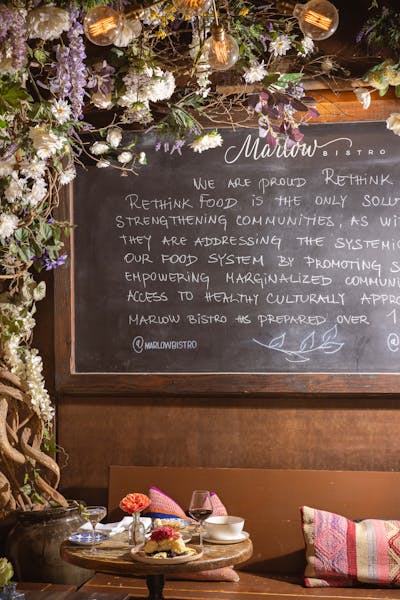 Marlow BISTRO
WE ARE PROUD RETHINK
RETHINK FOOD IS THE ONLY SOLU
STRENGTHENING COMMUNITIES, AS WI
THEY ARE ADDRESSING THE SYSTEMIC
OUR FOOD SYSTEM BY PROMOTING S
EMPOWERING MARGINALIZED COMMUNI
ACCESS TO HEALTHY CULTURALLY APPRO
MARLOW BISTRO HS PREPARED OVER 1
@MARLOWBISTRO @